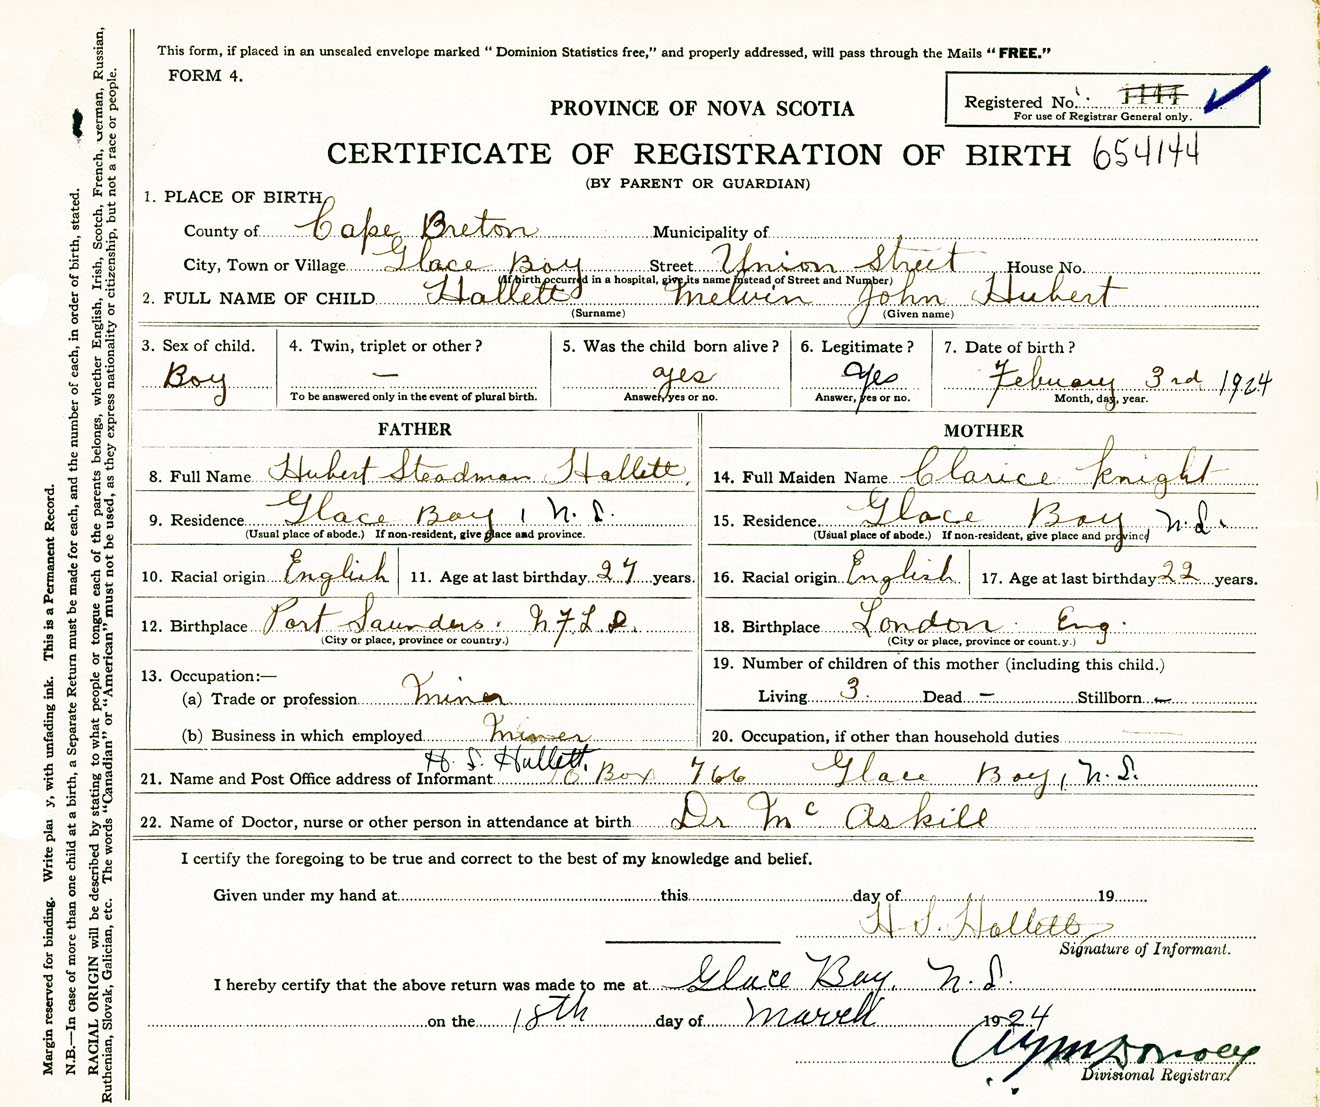 This form, if placed in an unsealed envelope marked "Dominion Statistics free," and properly addressed, will pass through the Mails "FREE."
FORM 4.
Registered No. 1144
For use of Registrar General only.
PROVINCE OF NOVA SCOTIA
CERTIFICATE OF REGISTRATION OF BIRTH 654144
(BY PARENT OR GUARDIAN)
1. PLACE OF BIRTH
County of Cape Breton Municipality of
City, Town or Village Glace Bay Street Union Street House No.
(If birth occurred in a hospital, give its name instead of Street and Number)
2. FULL NAME OF CHILD Hallett Melvin John Hubert
(Surname) (Given name)
3. Sex of child. 4. Twin, triplet or other? 5. Was the child born alive? 6. Legitimate? 7. Date of birth?
Boy — yes yes February 3rd 1924
To be answered only in the event of plural birth. Answer, yes or no. Answer, yes or no. Month, day, year.
FATHER MOTHER
8. Full Name Hubert Steadman Hallett, 14. Full Maiden Name Clarice Knight
9. Residence Glace Bay, N.S. 15. Residence Glace Bay, N.S.
(Usual place of abode.) If non-resident, give place and province. (Usual place of abode.) If non-resident, give place and province
10. Racial origin English 11. Age at last birthday 27 years. 16. Racial origin English 17. Age at last birthday 22 years.
12. Birthplace Port Saunders. NFLD. 18. Birthplace London Eng.
(City or place, province or country.) (City or place, province or count.y.)
13. Occupation:— 19. Number of children of this mother (including this child.)
(a) Trade or profession Miner Living 3. Dead — Stillborn —
(b) Business in which employed Miner 20. Occupation, if other than household duties
H. S. Hallett,
21. Name and Post Office address of Informant Box 766 Glace Bay, N.S.
22. Name of Doctor, nurse or other person in attendance at birth Dr Mc Askill
I certify the foregoing to be true and correct to the best of my knowledge and belief.
Given under my hand at this day of 19
H S. Hallett
Signature of Informant.
I hereby certify that the above return was made to me at Glace Bay, N.S.
on the 18th day of March 1924
Divisional Registrar.
Margin reserved for binding. Write plai y, with unfading ink. This is a Permanent Record.
N.B.—In case of more than one child at a birth, a Separate Return must be made for each, and the number of each, in order of birth, stated.
RACIAL ORIGIN will be described by stating to what people or tongue each of the parents belongs, whether English, Irish, Scotch, French, German, Russian,
Ruthenian, Slovak, Galician, etc. The words "Canadian" or "American" must not be used, as they express nationality or citizenship, but not a race or people.